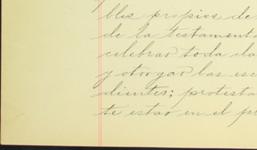 bles propios de
de la testament
celebrar toda cla
y otorgar las esc
dientes; protesta
te estar en el p